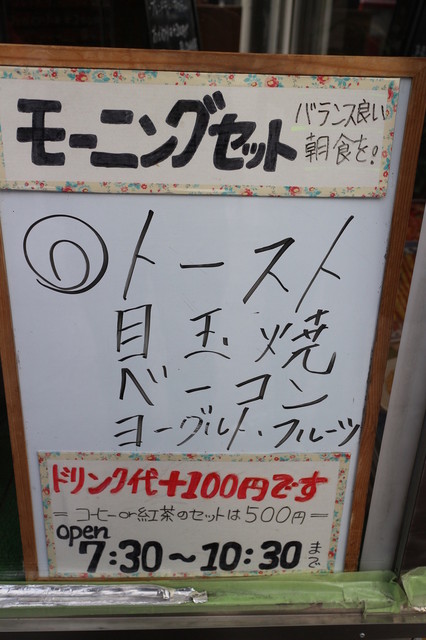 モーニングセット
バランス良い
朝食を!
◎トースト
目玉焼
ベーコン
ヨーグルト・フルーツ
ドリンク代+100円です
=コーヒーor紅茶のセットは500円=
open
7:30〜10:30まで